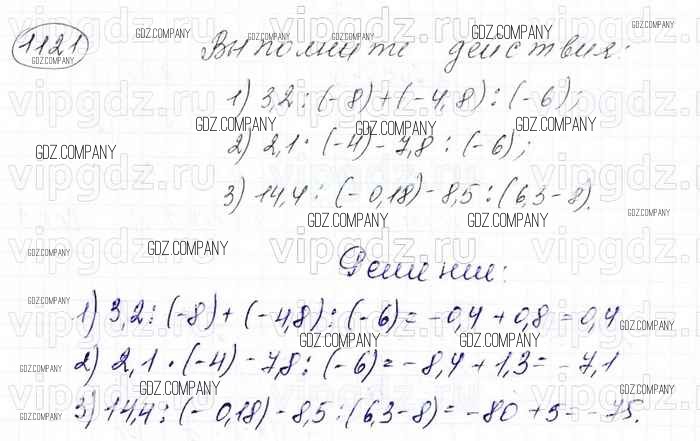 1121 Выполните действия:
1) 3,2 : (-8) + (-4,8) : (-6);
2) 2,1 · (-4) - 7,8 : (-6);
3) 14,4 : (-0,18) - 8,5 : (6,3 - 8).
Решение:
1) 3,2 : (-8) + (-4,8) : (-6) = -0,4 + 0,8 = 0,4
2) 2,1 · (-4) - 7,8 : (-6) = -8,4 + 1,3 = -7,1
3) 14,4 : (-0,18) - 8,5 : (6,3 - 8) = -80 + 5 = -75.
GDZ.COMPANY
vipgdz.ru